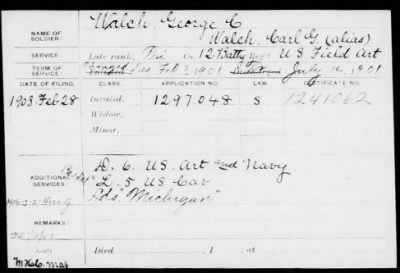 NAME OF SOLDIER: Walch, George C.
Walch, Carl G. (alias)
SERVICE: Late rank, Pri Co. 12 Batty Reg't U.S. Field Art
TERM OF SERVICE: Feb 7, 1901 July 12, 1901
DATE OF FILING. CLASS. APPLICATION NO. LAW. CERTIFICATE NO.
1903 Feb 28 Invalid, 1297.048 S 1241062
Widow,
Minor,
ADDITIONAL SERVICES: D. 6. U.S. Art and Navy
L. 5 US Cav
"Michigan"
REMARKS:
Died , 1 , at